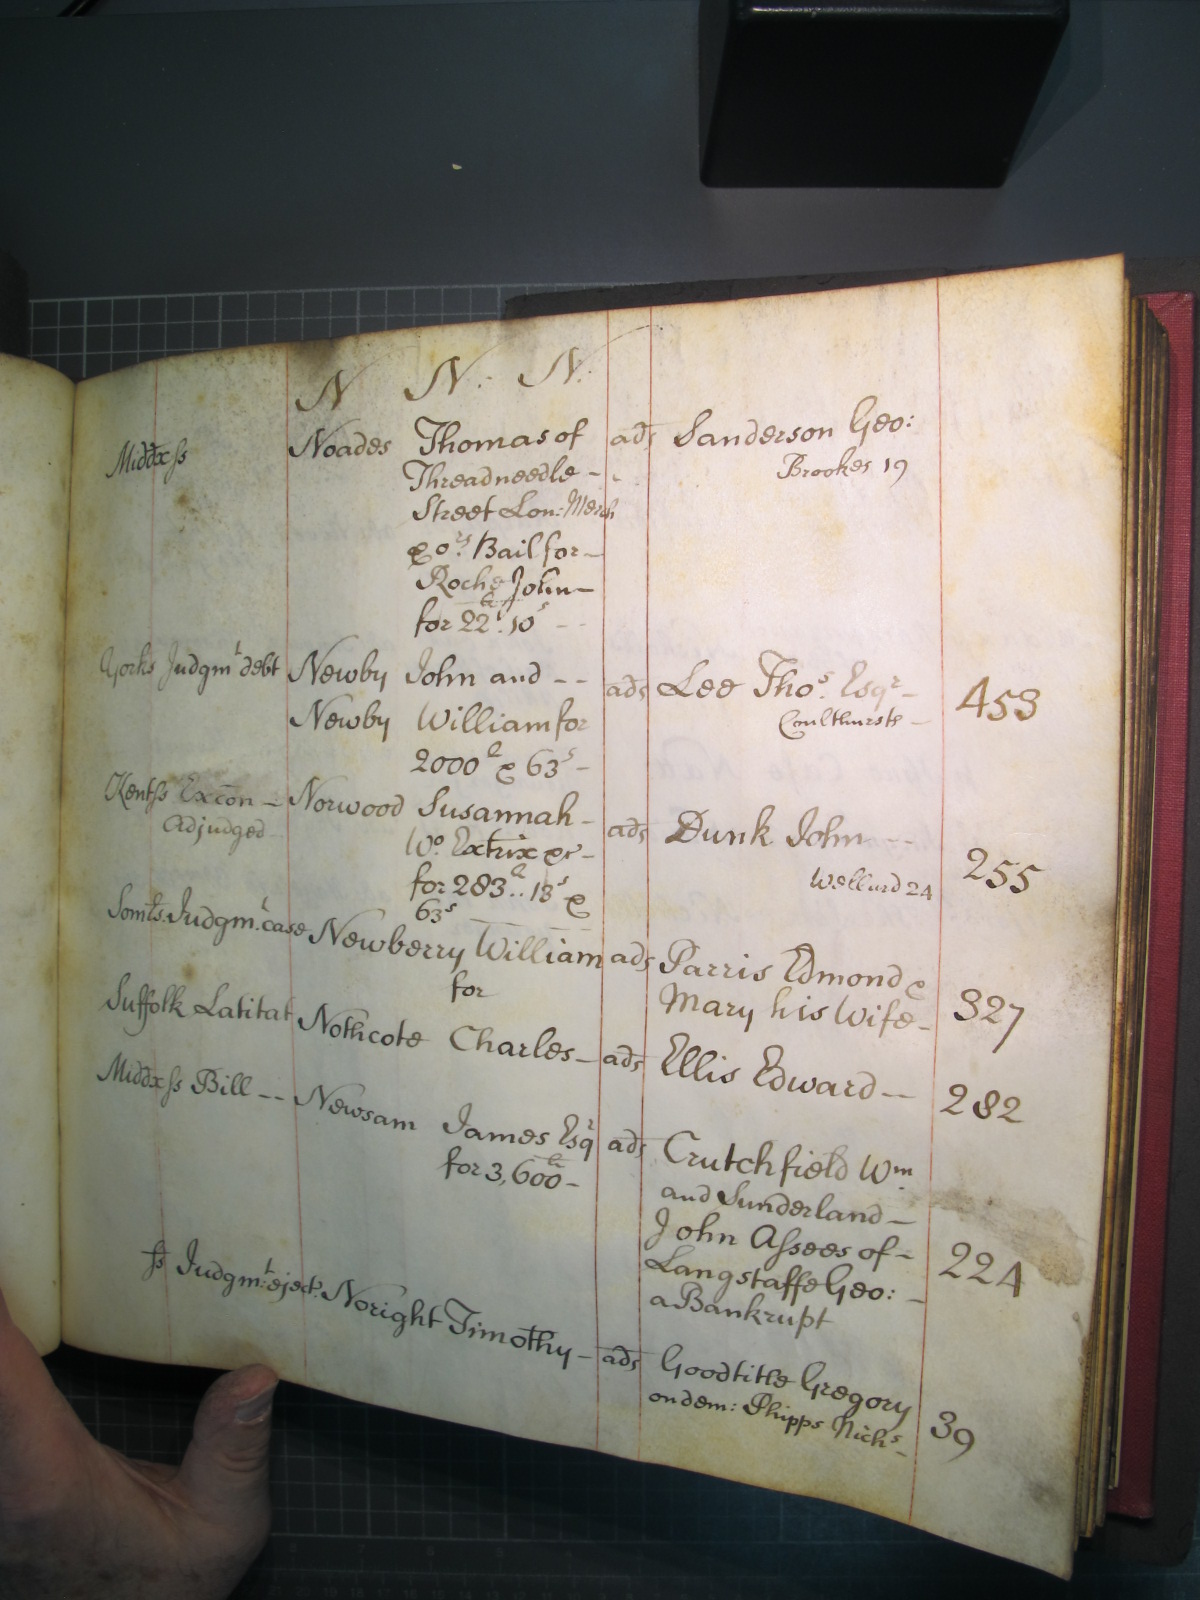 N N: N:
Middx ss Noades Thomas of ads Sanderson Geo:
Threadneedle - Brookes 19
Street Lon: Merch
& ors. Bail for -
Roche John -
for 22l. 10s - -
Yorks Judgmt debt Newby John and - - ads Lee Thos. Esqr - 453
Newby William for Coulthurste -
2000l & 63s -
Kent ss Ex con - Norwood Susannah - ads Dunk John - - 255
Adjudged - Wo. Extrix &c - Wellurd 24
for 283l.. 13s &
63s
Somts. Judgmt. case Newberry William ads Parris Edmond & 327
for Mary his Wife -
Suffolk Latitat Nothcote Charles - ads Ellis Edward - - 282
Middx ss Bill - - Newsam James Esqr ads Crutchfield Wm. 224
for 3,600li - and Sunderland -
John Assees of -
Langstaffe Geo: -
a Bankrupt
ss Judgmt: eject. Noright Timothy - ads Goodtitle Gregory 39
on dem: Phipps Nichs -